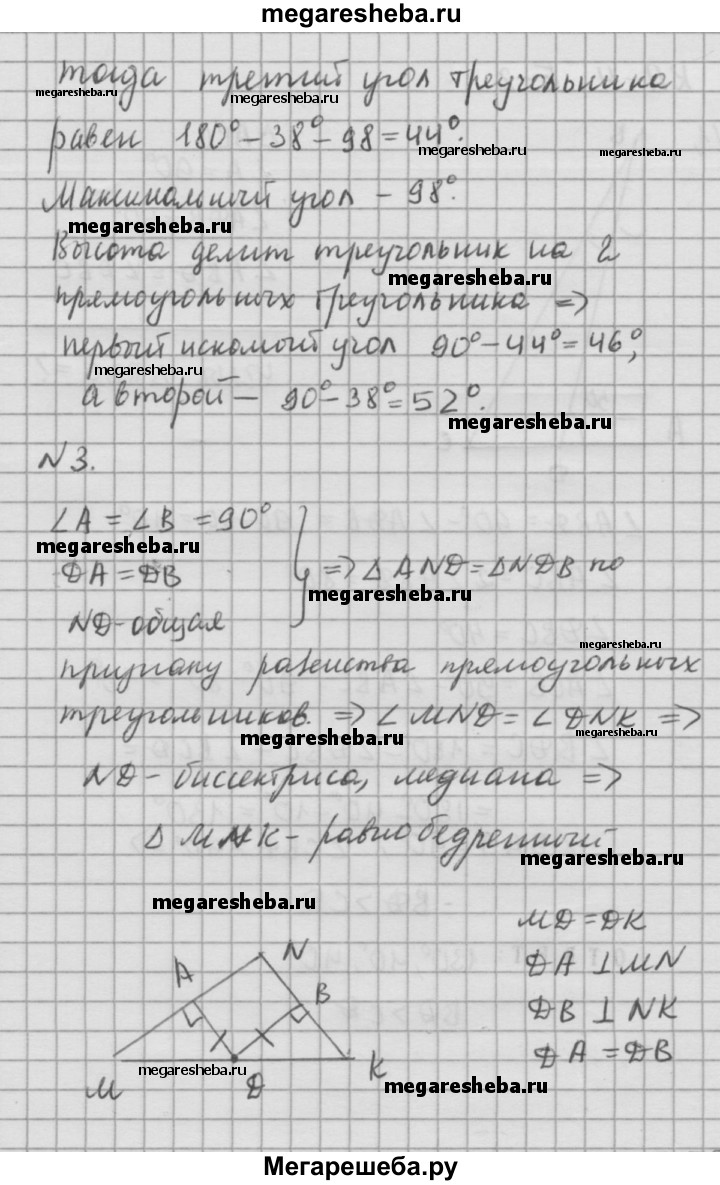 megaresheba.ru
тогда третий угол треугольника
megaresheba.ru megaresheba.ru
равен 180° – 38° – 98 = 44°.
megaresheba.ru megaresheba.ru
Максимальный угол – 98°.
megaresheba.ru
Высота делит треугольник на 2
megaresheba.ru
прямоугольных треугольника =>
первый искомый угол 90° – 44° = 46°,
megaresheba.ru
а второй – 90° – 38° = 52°.
megaresheba.ru
N 3.
∠A = ∠B = 90°
megaresheba.ru
DA = DB => △ AND = △NDB по
megaresheba.ru
ND-общая
megaresheba.ru
признаку равенства прямоугольных
треугольников. => ∠MND = ∠DNK =>
megaresheba.ru megaresheba.ru
ND – биссектриса, медиана =>
△ MNK – равнобедренный
megaresheba.ru
megaresheba.ru
MD = DK
N
DA ⊥ MN
A
B
DB ⊥ NK
DA = DB
megaresheba.ru
K
M
D
megaresheba.ru
Мегарешеба.ру